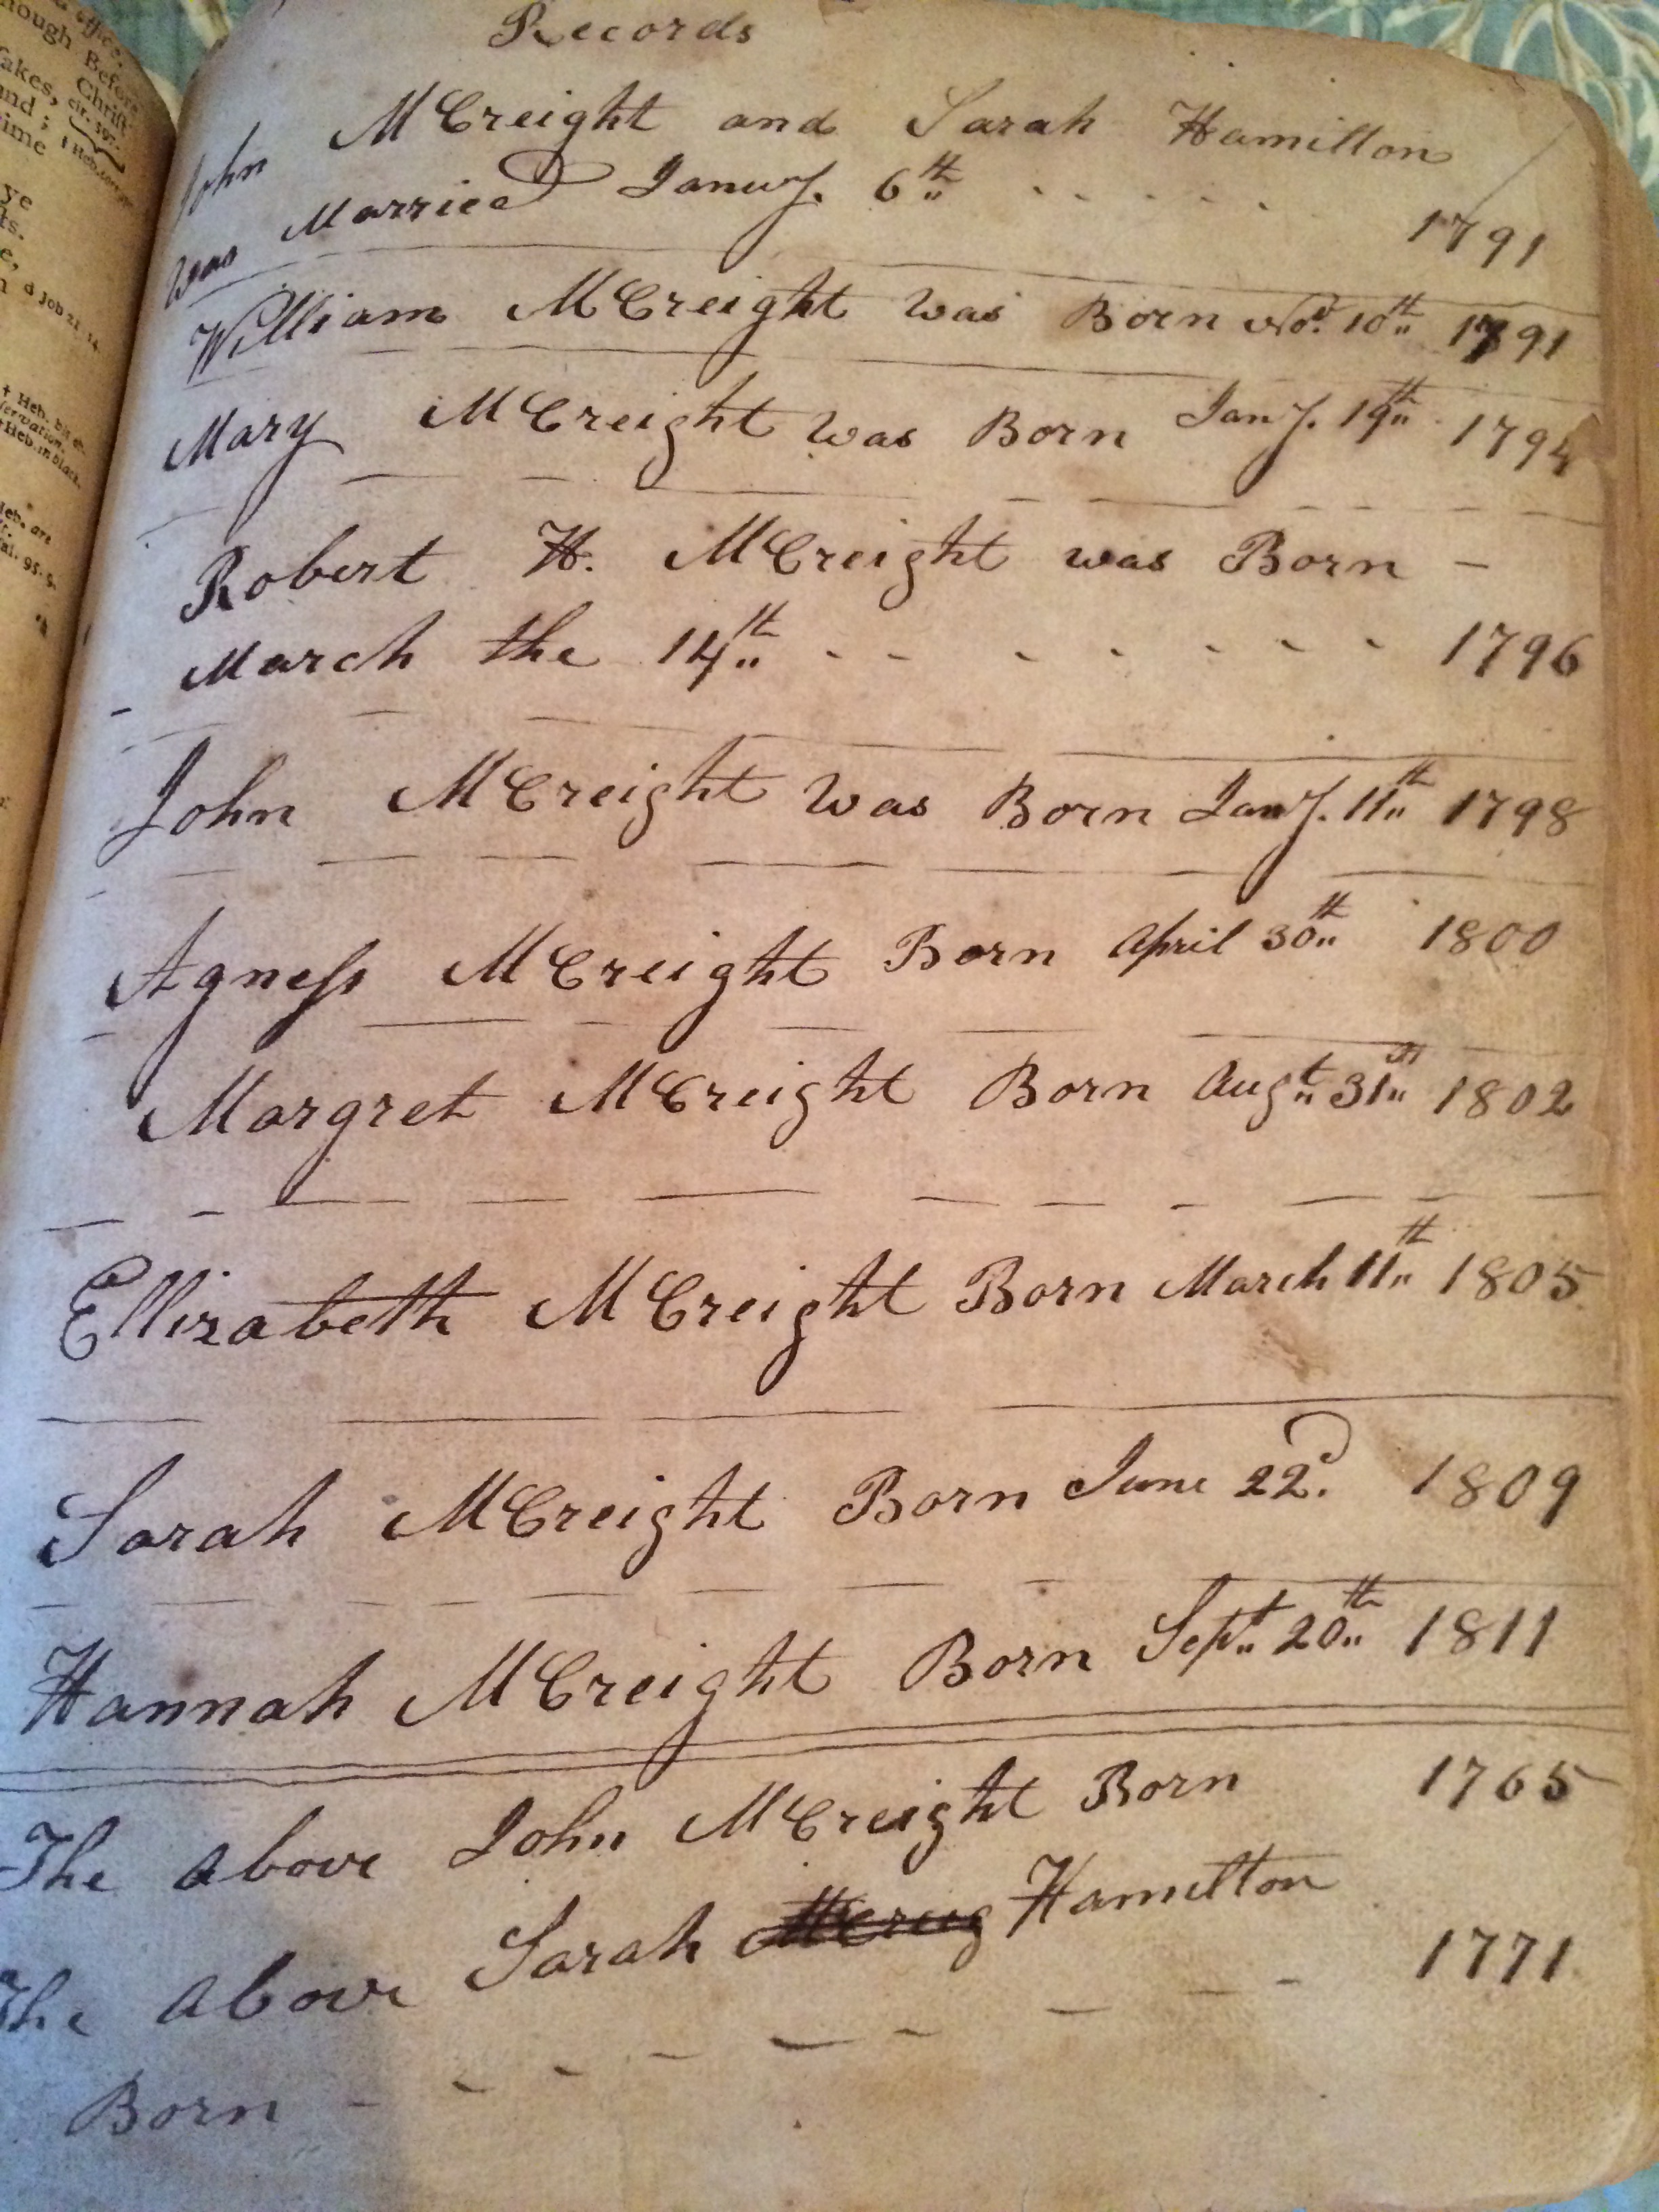 office.
nough Before
akes, Christ
and ; cir. 597.
time
ye
ts.
e,
d Job 21. 14
† Heb.
servation.
Heb. in black.
Heb. are
95. 9.
Records
John McCreight and Sarah Hamilton
Was Married Janury. 6th 1791
William McCreight was Born Nov. 10th 1791
Mary McCreight was Born Jany. 19th 1794
Robert H. McCreight was Born -
March the 14th 1796
John McCreight was Born Jany. 11th 1798
Agness McCreight Born April 30th 1800
Margret McCreight Born Augt 31st 1802
Ellizabeth McCreight Born March 11th 1805
Sarah McCreight Born June 22d. 1809
Hannah McCreight Born Sept 20th 1811
The above John McCreight Born 1765
The above Sarah McCreig Hamilton
Born - - - - - - - - - 1771